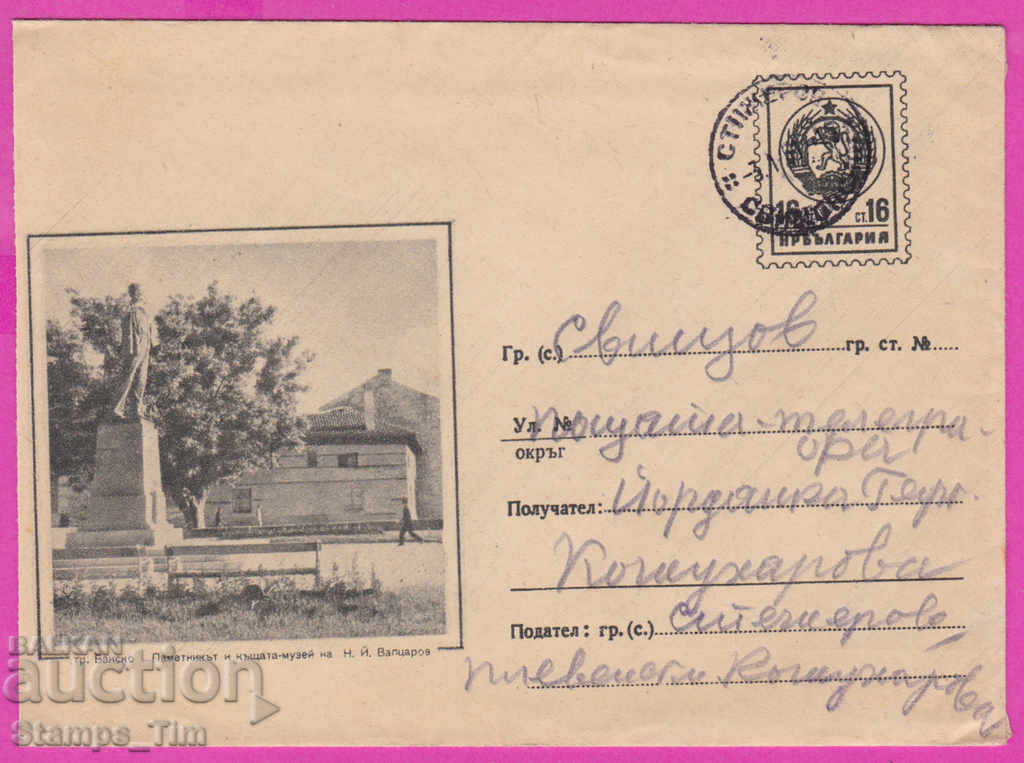 СТѢЖЕРОВ
СВИЩОВ
16 ст. 16
НРБЪЛГАРИЯ
Гр. (с.) Свищов гр. ст. №
Ул. № пощата-телегра-
окръг фа
Получател: Йорданка Георг.
Кожухарова
Подател: гр. (с.) Стежерово
Плевенски Кожухарова
гр. Банско Паметникът и къщата-музей на Н. Й. Вапцаров
BALKAN
auction
Stamps_Tim